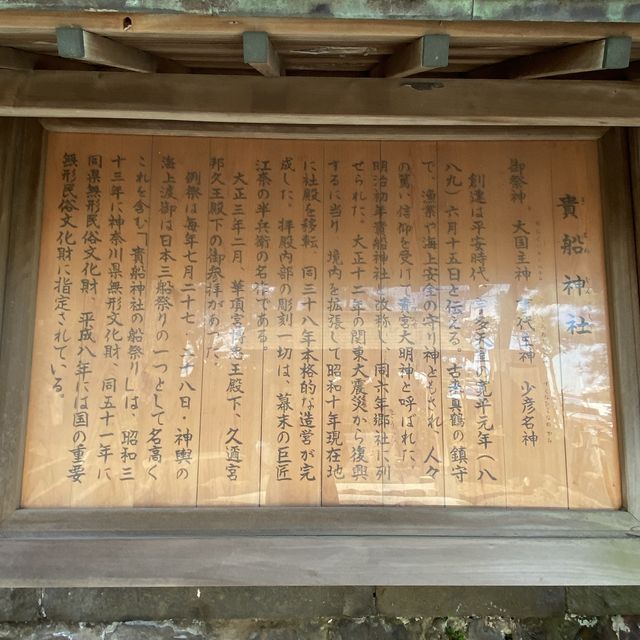 貴船神社
御祭神、大国主神 事代主神 少彦名神
創建は平安時代、宇多天皇の寛平元年(八
八九)六月十五日と伝える。古来真鶴の鎮守
で、漁業や海上安全の守り神とされ、人々
の篤い信仰を受け、貴宮大明神と呼ばれた。
明治初年貴船神社と改称し、同六年郷社に列
せられた。大正十二年の関東大震災から復興
するに当り、境内を拡張して昭和十年現在地
に社殿を移転、同三十八年本格的な造営が完
成した。拝殿内部の彫刻一切は、幕末の巨匠
江奈の半兵衛の名作である。
大正三年二月、華頂宮博忠王殿下、久邇宮
邦久王殿下の御参拝があった。
例祭は毎年七月二十七、二十八日・神輿の
海上渡御は日本三船祭りの一つとして名高く
これを含む「貴船神社の船祭り」は、昭和三
十三年に神奈川県無形文化財、同五十一年に
同県無形民俗文化財、平成八年には国の重要
無形民俗文化財に指定されている。